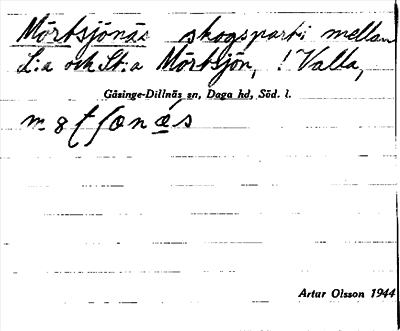 Mörtsjönäs skogsparti mellan
L:a och St:a Mörtsjön, ! Valla,
Gåsinge-Dillnäs sn, Daga hd, Söd. l.
Artur Olsson 1944